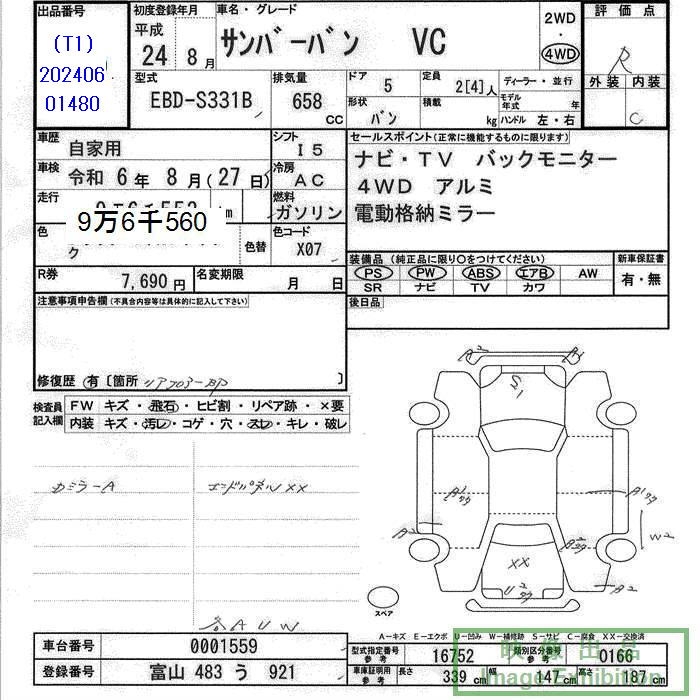 出品番号
(T1)
202406
01480
初度登録年月
平成
24 8月
車名・グレード
サンバーバン VC
2WD
・
4WD
評価点
R
外装 内装
C
型式
EBD-S331B
排気量
658 CC
ドア
5
定員
2[4]人
ディーラー・並行
形状
バン
積載
kg
モデル年式 年
ハンドル 左・右
車歴
自家用
シフト
I5
車検
令和 6年 8月(27日)
冷房
AC
走行
9万6千560
km
燃料
ガソリン
色
ク
色替
色コード
X07
セールスポイント(正常に機能するものに限ります)
ナビ・TV バックモニター
4WD アルミ
電動格納ミラー
装備品(純正品に限り○をつけてください)
PS PW ABS エアB AW
SR ナビ TV カワ
新車保証書
有・無
R券
7,690円
名変期限
月 日
後日品
注意事項申告欄(不具合内容等は具体的に記入して下さい)
修復歴 有〔箇所 リアフロアーBP 〕
検査員記入欄
FW キズ・飛石・ヒビ割・リペア跡・×要
内装 キズ・汚レ・コゲ・穴・スレ・キレ・破レ
カミラーA
エンドパネルXX
各AUW
A2
S1
A1
A2
W2
A2
XX
U2
スペア
A-キズ E-エクボ U-凹み W-補修跡 S-サビ C-腐食 XX-交換済
車台番号
0001559
登録番号
富山 483 う 921
型式指定番号
参考
16752
類別区分番号
参考
0166
車庫証明用
参考
長さ 339cm 幅 147cm 高さ 187cm
映像出品
Image Exhibition